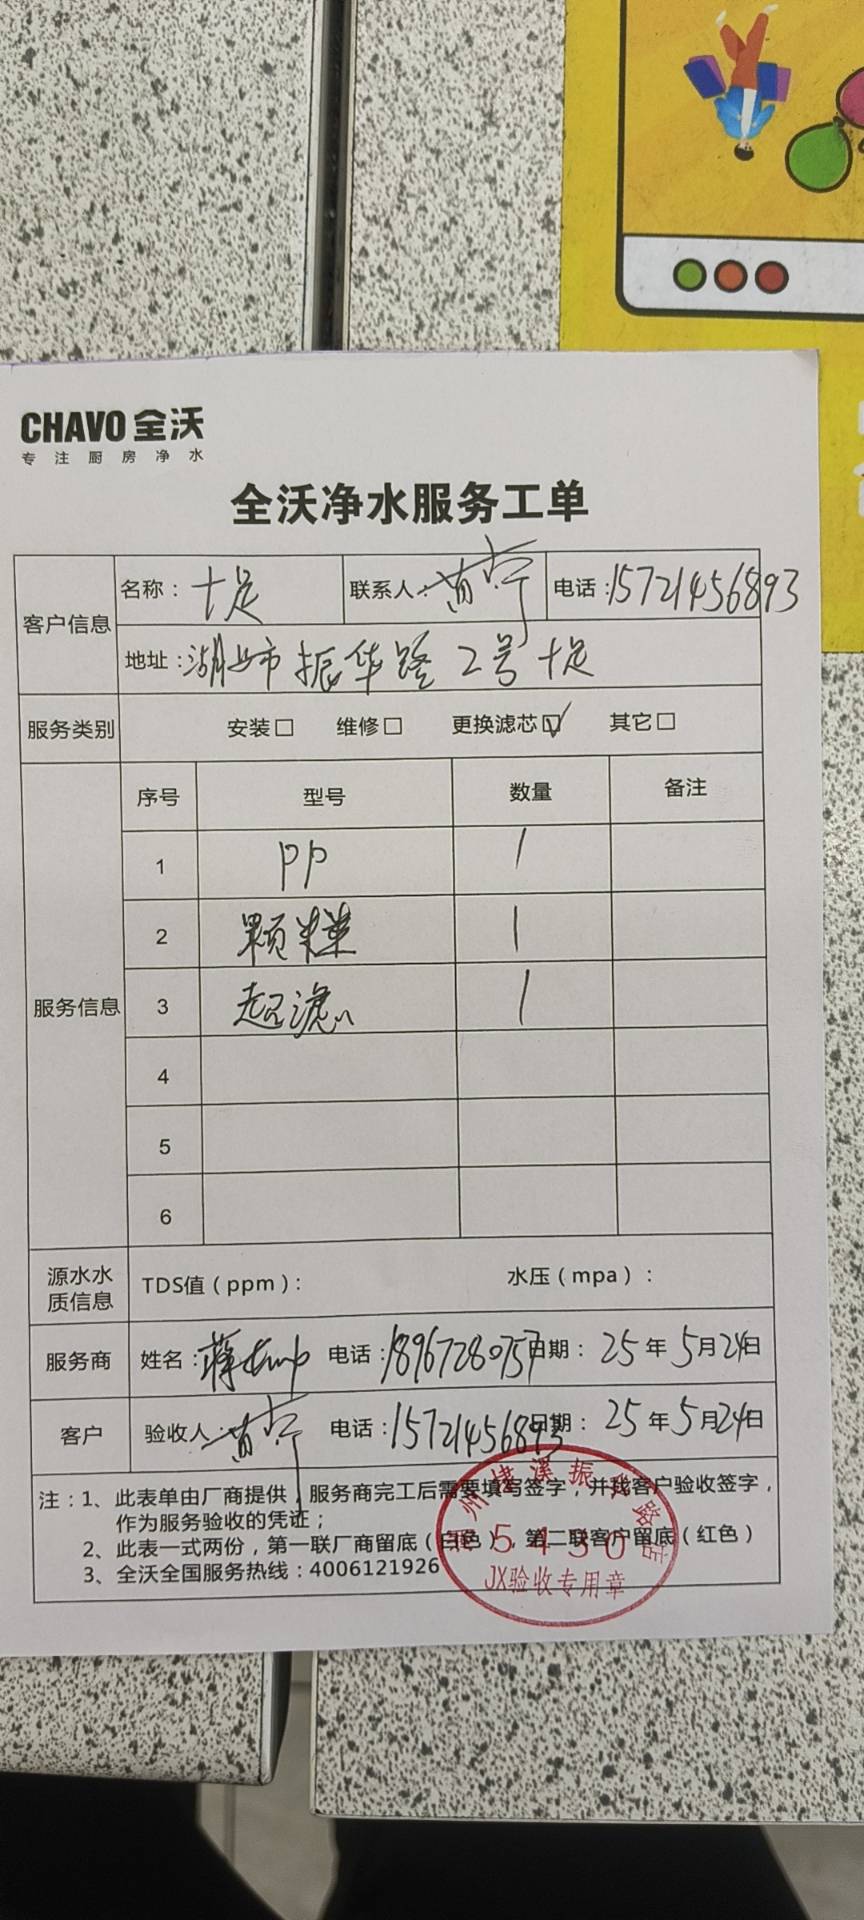 CHAVO 全沃
专注厨房净水
全沃净水服务工单
客户信息
名称：十足 联系人：黄宁 电话：15721456893
地址：湖州市振华路2号十足
服务类别 安装□ 维修□ 更换滤芯☑ 其它□
服务信息
序号 型号 数量 备注
1 PP 1
2 颗粒 1
3 超滤 1
4
5
6
源水水质信息 TDS值（ppm）： 水压（mpa）：
服务商 姓名：蒋 电话：18967280757 日期：25年5月24日
客户 验收人：黄宁 电话：15721456893 日期：25年5月24日
注：1、此表单由厂商提供，服务商完工后需要填写签字，并找客户验收签字，
作为服务验收的凭证；
2、此表一式两份，第一联厂商留底（白色），第二联客户留底（红色）
3、全沃全国服务热线：4006121926
湖州埭溪振华路店
5430
JX验收专用章